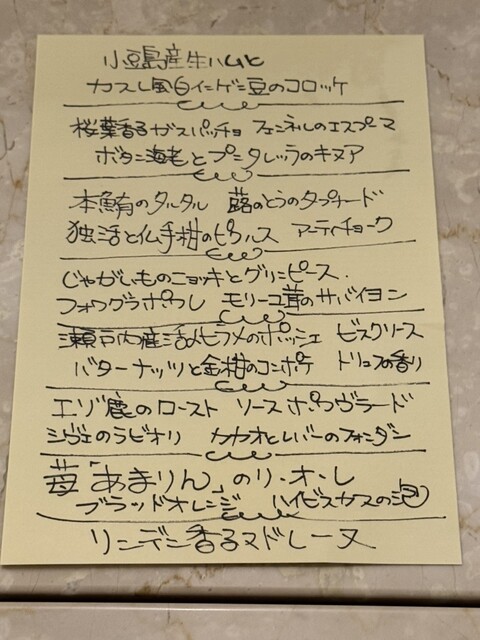 小豆島産生ハムと
カスレ風白インゲン豆のコロッケ
桜葉香るガスパッチョ フェンネルのエスプーマ
ボタン海老とプンタレッラのキヌア
本鮪のタルタル 蕗のとうのタプナード
独活と仏手柑のピクルス アーティチョーク
じゃがいものニョッキとグリンピース.
フォワグラポワレ モリーユ茸のサバイヨン
瀬戸内産活〆ヒラメのポッシェ ビスクソース
バターナッツと金柑のコンポテ トリュフの香り
エゾ鹿のロースト ソースポワヴラード
シヴェのラビオリ カカオとレバーのフォンダン
苺「あまりん」のリ・オ・レ
ブラッドオレンジ ハイビスカスの泡
リンデン香るマドレーヌ